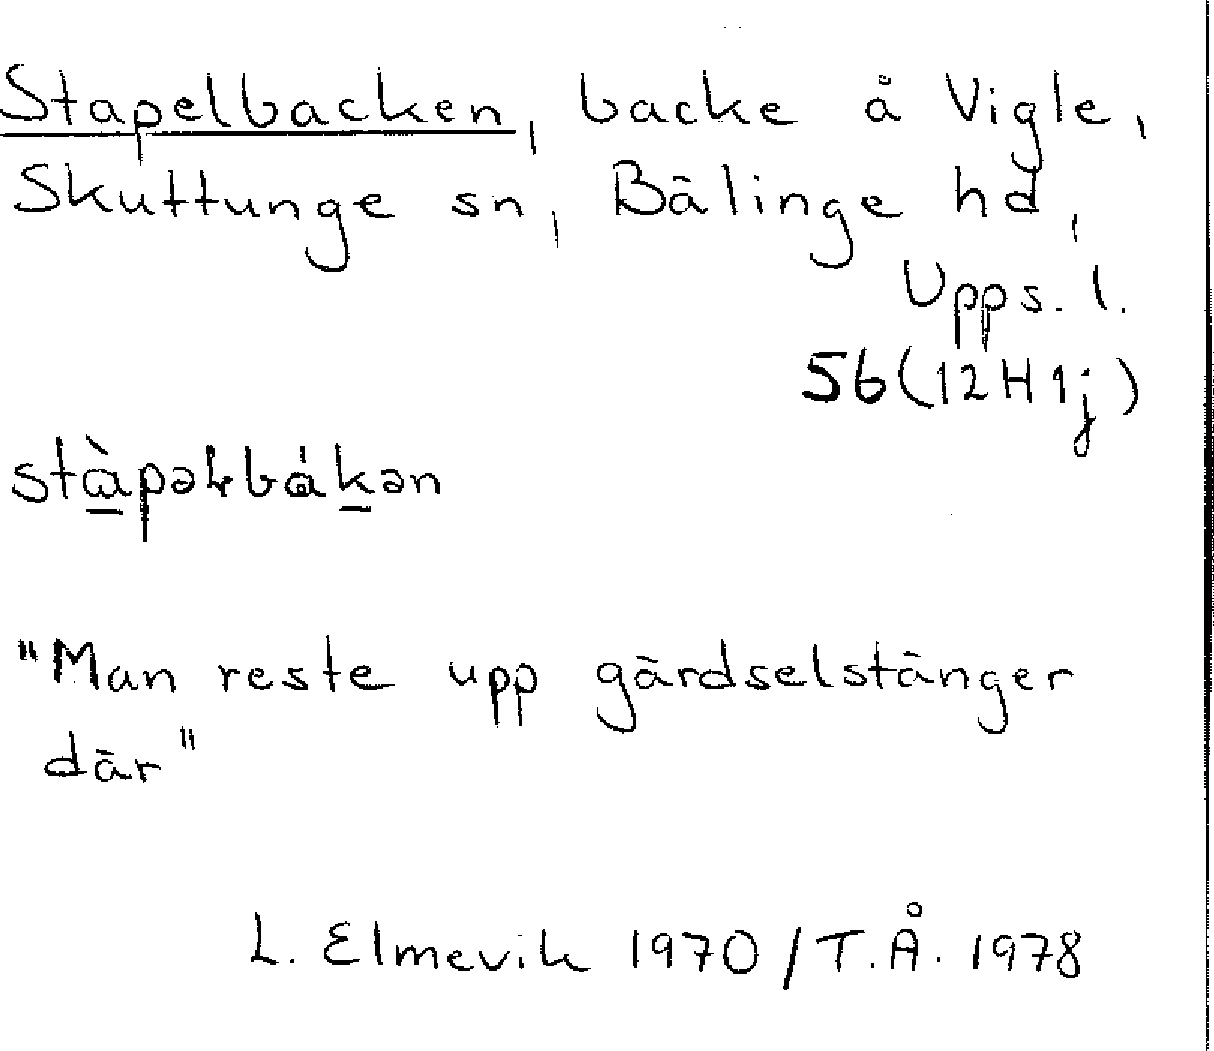 Stapelbacken, backe å Vigle,
Skuttunge sn, Bälinge hd,
Upps. l.
56(12H1j)
stàpəłbákən
"Man reste upp gärdselstänger
där"
L. Elmevik 1970/T.Å. 1978